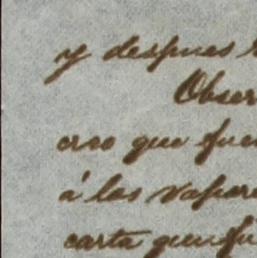 y despues
Obser
creo que fue
á los vapore
carta que fu